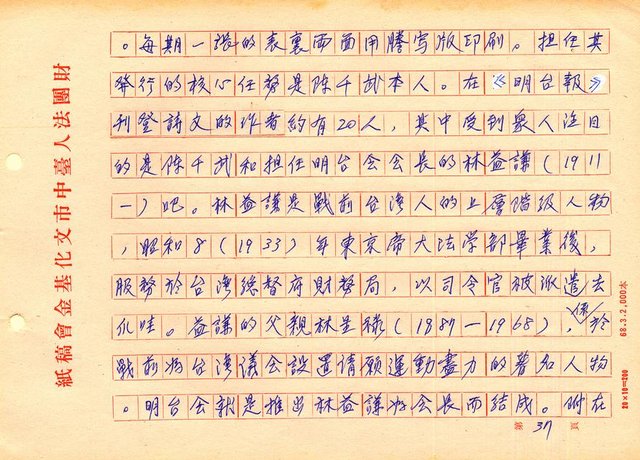 。每期一張的表裏両面用謄写版印刷。担任其
發行的核心任務是陳千武本人。在《明台報》
刊登詩文的作者約有20人，其中受到衆人注目
的是陳千武和担任明台会会長的林益謙（1911
—）吧。林益謙是戰前台湾人的上層階級人物
，昭和8（1933）年東京帝大法学部畢業後，
服務於台湾総督府財務局，以司令官被派遣去
爪哇。益謙的父親林呈祿（1887—1968），係於
戰前為台湾議会設置请願運動盡力的著名人物
。明台会就是推出林益謙為会長而結成。附在
財團法人臺中市文化基金會稿紙
68.3.2,000本
20×10＝200
第 37 頁